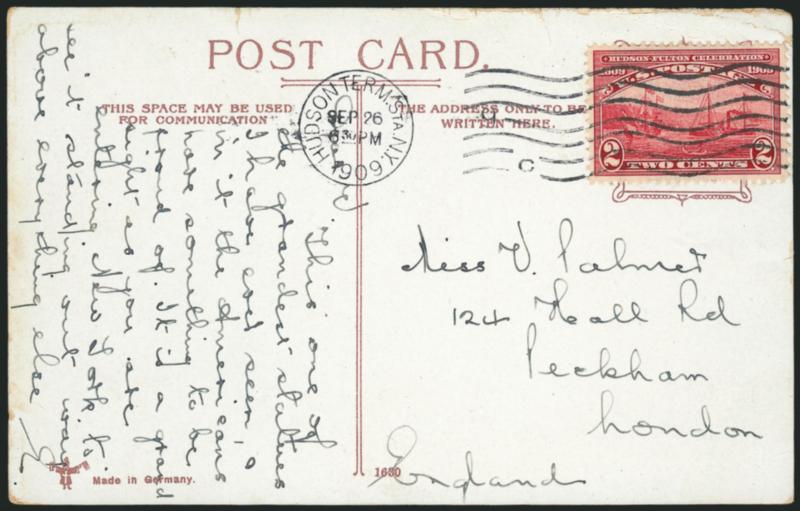 POST CARD.
THIS SPACE MAY BE USED
FOR COMMUNICATION
THE ADDRESS ONLY TO BE
WRITTEN HERE.
HUDSON TERM. STA. N.Y.
SEP 26
6 30 PM
1909
HUDSON-FULTON CELEBRATION
1609 1909
U.S. POSTAGE
2 TWO CENTS 2
This one of
the grandest statues
I have ever seen
in it the Americans
have something to be
proud of. It is a grand
sight as you are
entering New York to
see it standing out way
above everything else
Miss V. Palmer
124 Hall Rd
Peckham
London
England
Made in Germany.
1630